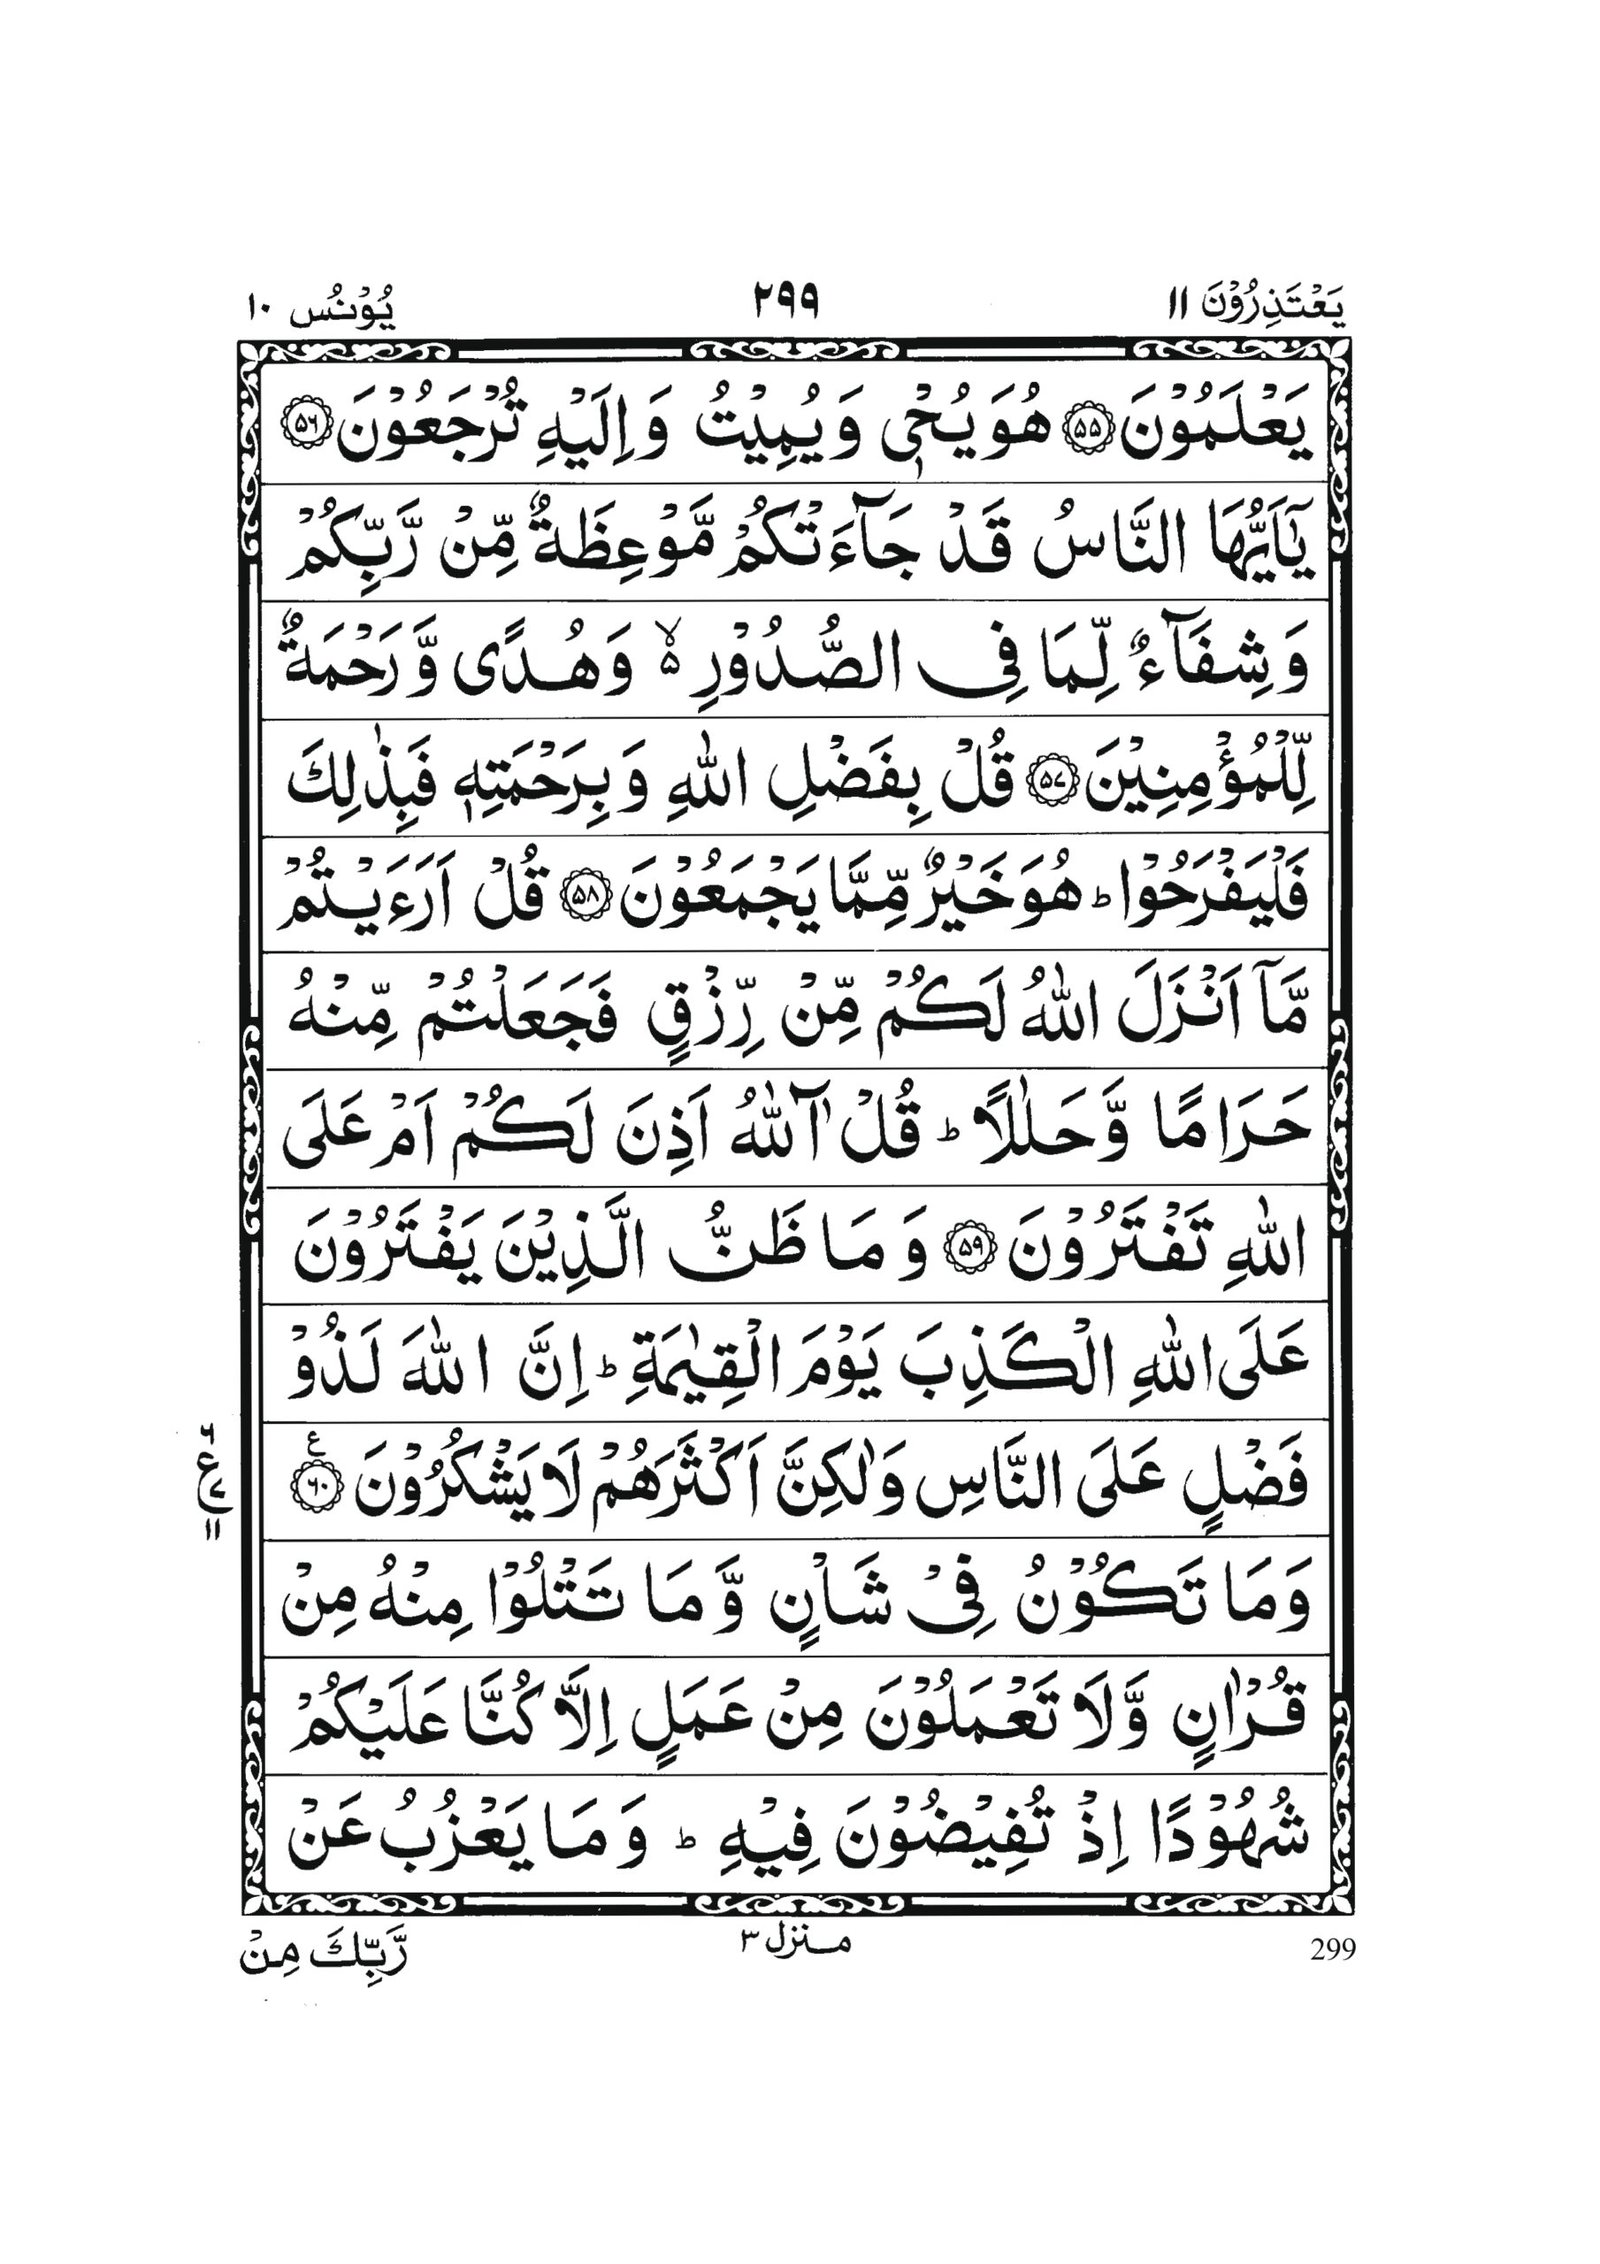 يَعْتَذِرُوْنَ ۱۱ ۲۹۹ يُوْنُس ۱۰
يَعْلَمُوْنَ ﴿۵۵﴾ هُوَ يُحْيٖ وَيُمِيْتُ وَاِلَيْهِ تُرْجَعُوْنَ ﴿۵۶﴾
يٰۤاَيُّهَا النَّاسُ قَدْ جَآءَتْكُمْ مَّوْعِظَةٌ مِّنْ رَّبِّكُمْ
وَشِفَآءٌ لِّمَا فِى الصُّدُوْرِ ۙ۬ وَهُدًى وَّرَحْمَةٌ
لِّلْمُؤْمِنِيْنَ ﴿۵۷﴾ قُلْ بِفَضْلِ اللّٰهِ وَبِرَحْمَتِهٖ فَبِذٰلِكَ
فَلْيَفْرَحُوْا ؕ هُوَ خَيْرٌ مِّمَّا يَجْمَعُوْنَ ﴿۵۸﴾ قُلْ اَرَءَيْتُمْ
مَّاۤ اَنْزَلَ اللّٰهُ لَكُمْ مِّنْ رِّزْقٍ فَجَعَلْتُمْ مِّنْهُ
حَرَامًا وَّحَلٰلًا ؕ قُلْ آٰللّٰهُ اَذِنَ لَكُمْ اَمْ عَلَى
اللّٰهِ تَفْتَرُوْنَ ﴿۵۹﴾ وَمَا ظَنُّ الَّذِيْنَ يَفْتَرُوْنَ
عَلَى اللّٰهِ الْكَذِبَ يَوْمَ الْقِيٰمَةِ ؕ اِنَّ اللّٰهَ لَذُوْ
فَضْلٍ عَلَى النَّاسِ وَلٰكِنَّ اَكْثَرَهُمْ لَا يَشْكُرُوْنَ ﴿۶۰﴾ ع
وَمَا تَكُوْنُ فِىْ شَاْنٍ وَّمَا تَتْلُوْا مِنْهُ مِنْ
قُرْاٰنٍ وَّلَا تَعْمَلُوْنَ مِنْ عَمَلٍ اِلَّا كُنَّا عَلَيْكُمْ
شُهُوْدًا اِذْ تُفِيْضُوْنَ فِيْهِ ؕ وَمَا يَعْزُبُ عَنْ
299 منزل ۳ رَّبِّكَ مِنْ